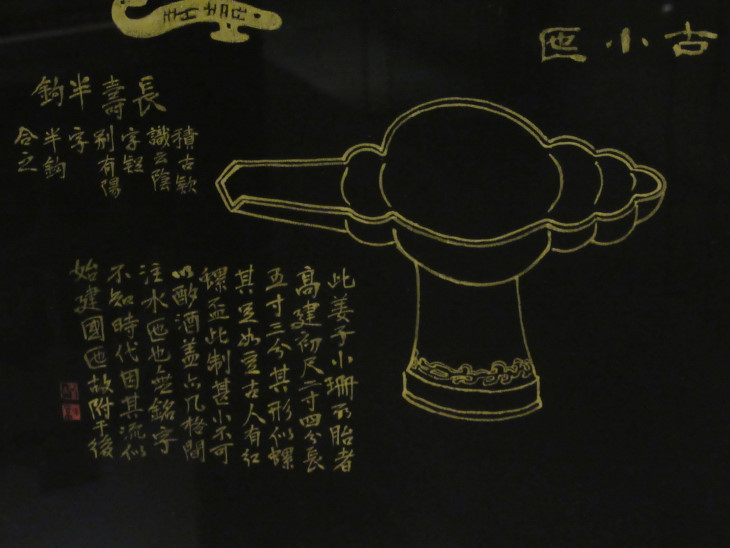 古小匜
長壽半鉤
積古欵
識云陰
字疑
别有陽
字
半鉤
合之
此姜子小珊所貽者
高建初尺二寸四分長
五寸三分其形似螺
其足如豆古人有紅
螺盃此制甚小不可
以酌酒蓋亦几格間
注水匜也無銘字
不知時代因其流似
始建國匜故附于後